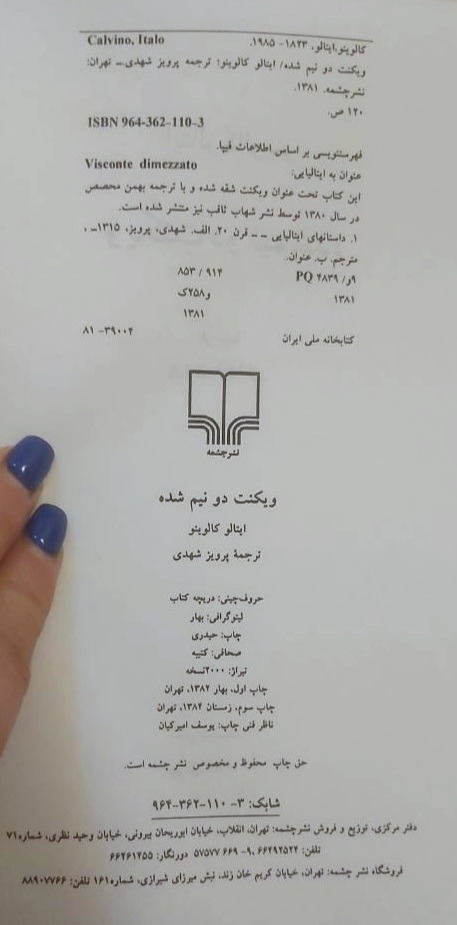 Calvino, Italo
کالوینو،ایتالو، ۱۸۲۳- ۱۹۸۵.
ویکنت دو نیم شده/ ایتالو کالوینو؛ ترجمه پرویز شهدی.ـ تهران:
نشرچشمه، ۱۳۸۱.
۱۲۰ ص.
ISBN 964-362-110-3
فهرستنویسی بر اساس اطلاعات فیپا.
عنوان به ایتالیایی: Visconte dimezzato
این کتاب تحت عنوان ویکنت شقه شده و با ترجمه بهمن محصص
در سال ۱۳۸۰ توسط نشر شهاب ثاقب نیز منتشر شده است.
۱. داستانهای ایتالیایی -- قرن ۲۰. الف. شهدی، پرویز، ۱۳۱۵-،
مترجم. ب. عنوان.
۹و/ PQ ۴۸۳۹ ۸۵۳ / ۹۱۴
۱۳۸۱ و۲۵۸ک
۱۳۸۱
کتابخانه ملی ایران ۸۱-۳۹۰۰۴
نشرچشمه
ویکنت دو نیم شده
ایتالو کالوینو
ترجمهٔ پرویز شهدی
حروف‌چینی: دریچه کتاب
لیتوگرافی: بهار
چاپ: حیدری
صحافی: کتیبه
تیراژ: ۲۰۰۰نسخه
چاپ اول، بهار ۱۳۸۲، تهران
چاپ سوم، زمستان ۱۳۸۴، تهران
ناظر فنی چاپ: یوسف امیرکیان
حق چاپ محفوظ و مخصوص نشر چشمه است.
شابک: ۳- ۱۱۰-۳۶۲-۹۶۴
دفتر مرکزی، توزیع و فروش نشرچشمه: تهران، انقلاب، خیابان ابوریحان بیرونی، خیابان وحید نظری، شماره۷۱
تلفن: ۶۶۴۹۲۵۲۴ .۹- ۶۶۹ ۵۷۵۷۷ دورنگار: ۶۶۴۶۱۴۵۵
فروشگاه نشر چشمه: تهران، خیابان کریم خان زند، نبش میرزای شیرازی، شماره۱۶۱ تلفن: ۸۸۹۰۷۷۶۶